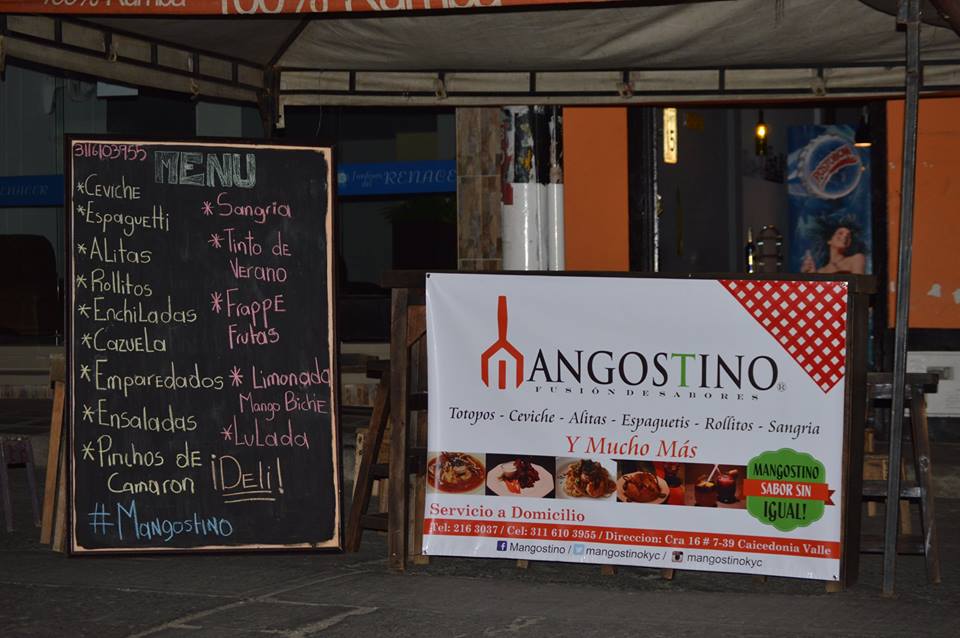 100% Rumba
100% Rumba
3116103955
MENU
*CEVICHE
*Espaguetti
*ALitas
*Rollitos
*EnchiLadas
*CazueLa
*Emparedados
*Ensaladas
*Pinchos de
Camaron
#Mangostino
*Sangria
*Tinto de
Verano
*Frappe
Frutas
*Limonada
Mango Biche
*LuLada
¡Deli!
Jardines
del RENACER
RENACER
MANGOSTINO®
FUSIÓN DE SABORES
Totopos - Ceviche - Alitas - Espaguetis - Rollitos - Sangria
Y Mucho Más
MANGOSTINO
SABOR SIN
IGUAL!
Servicio a Domicilio
Tel: 216 3037 / Cel: 311 610 3955 / Direccion: Cra 16 # 7-39 Caicedonia Valle
Mangostino / mangostinokyc / mangostinokyc